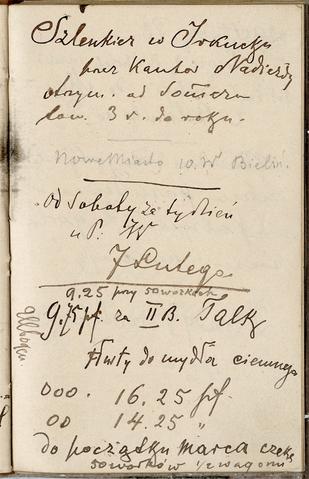 Szlenkier w Irkucku
przez Kantor Nadieżdy
otrzym. od Somera
tow. 3 r. do roku.
Nowe Miasto 10. W Bieliń.
od Soboty za tydzień
u P. W
7 Lutego
9.25 przy 50 workach
9.75 pf. za II B. Talk
Ellbogen
Hurty do mydła ciemnego
000. 16.25 pf.
00 14.25 "
do początku marca czeka
50 worków 1 wagoni